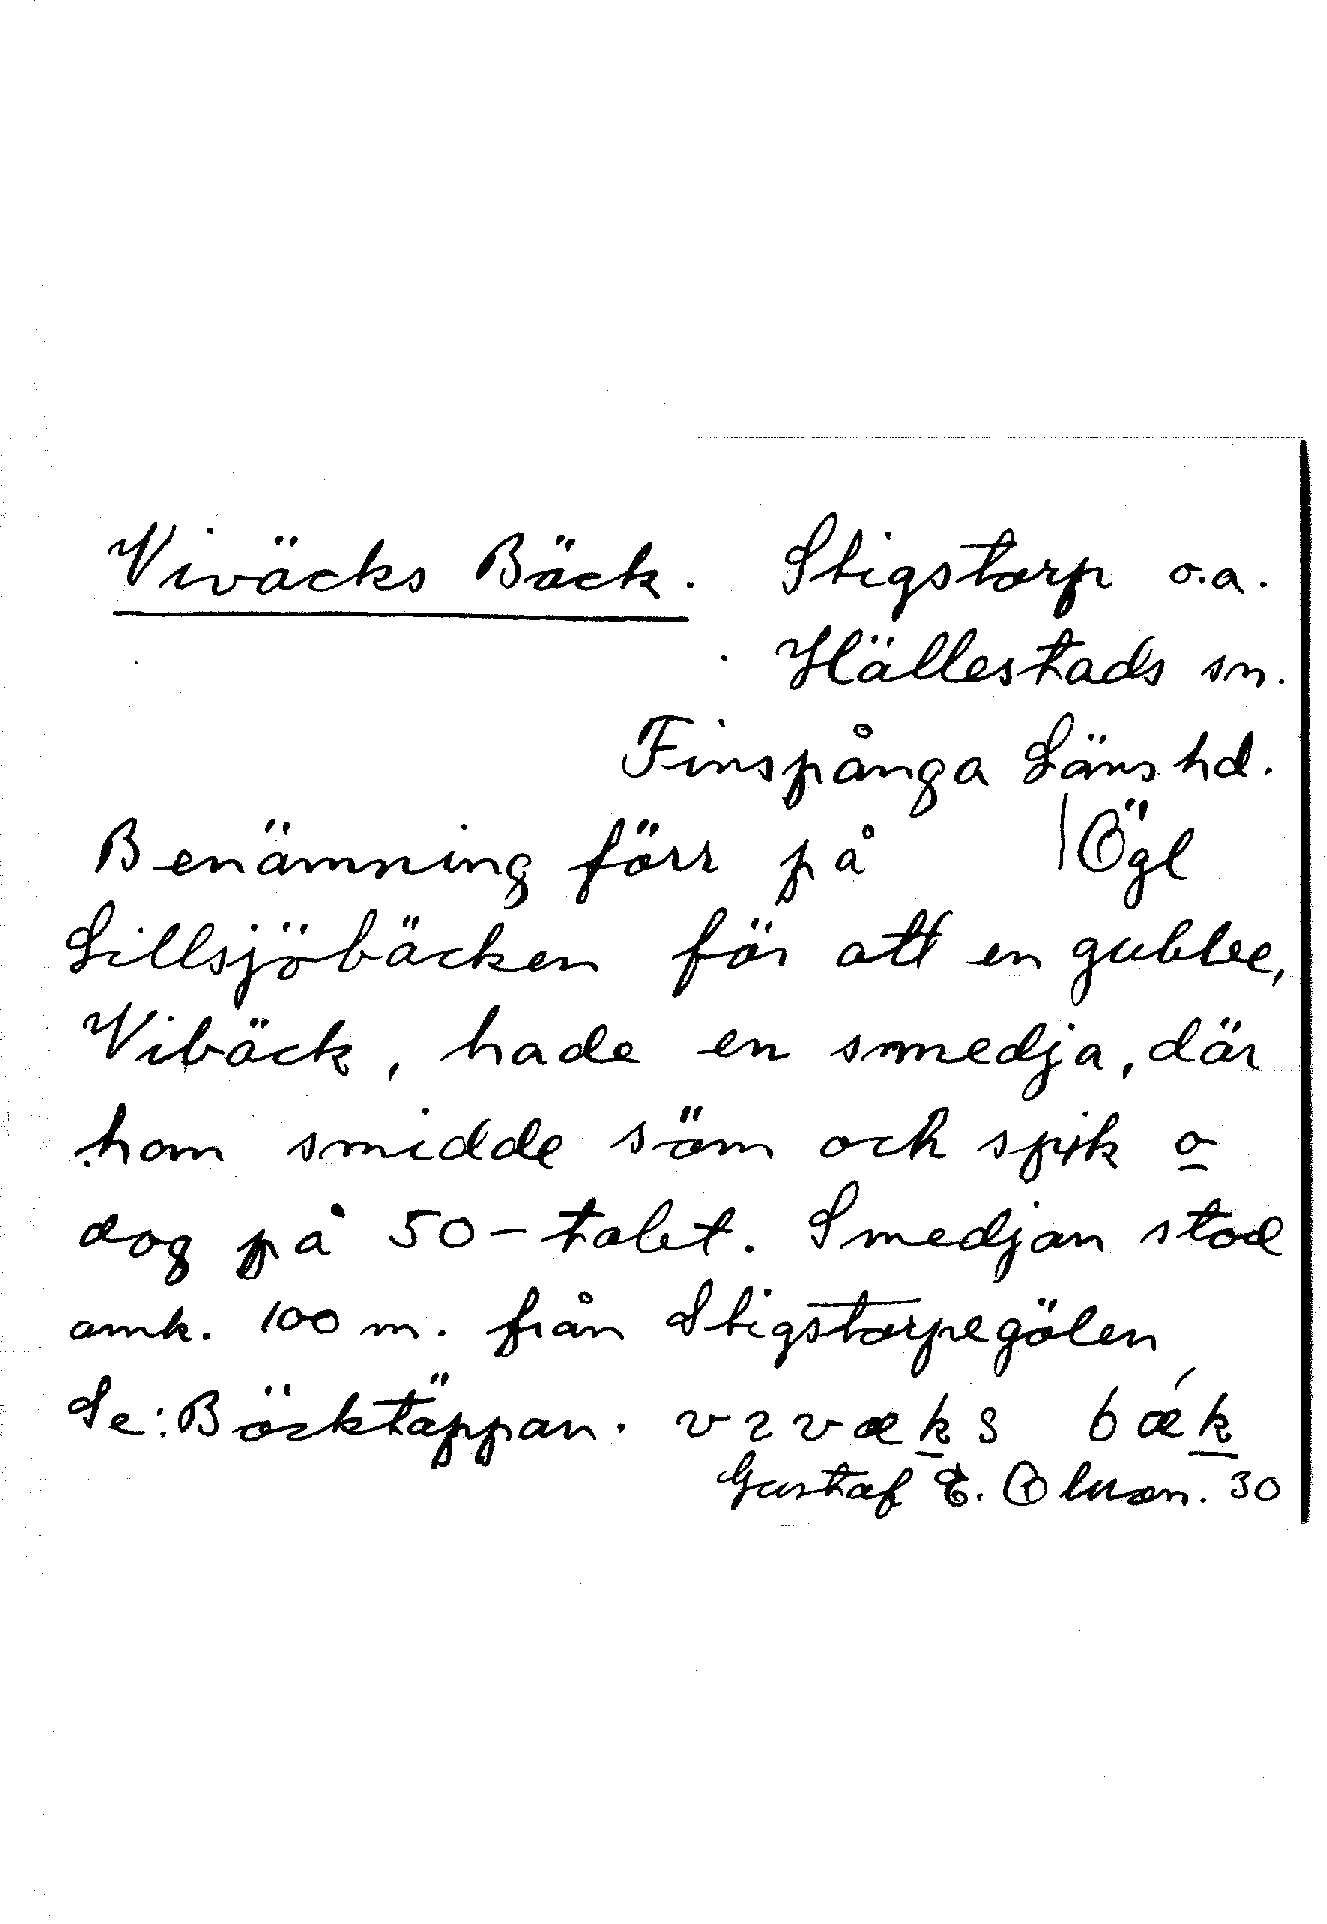 Viväcks Bäck. Stigstorp o.a.
Hällestads sn.
Finspånga Läns hd.
Benämning förr på Ögl
Lillsjöbäcken för att en gubbe,
Vibäck, hade en smedja, där
han smidde söm och spik o
dog på 50-talet. Smedjan stod
omk. 100 m. från Stigstorpegölen
Se: Bäcktäppan. vɩvæks bǽk
Gustaf E. Olsson. 30